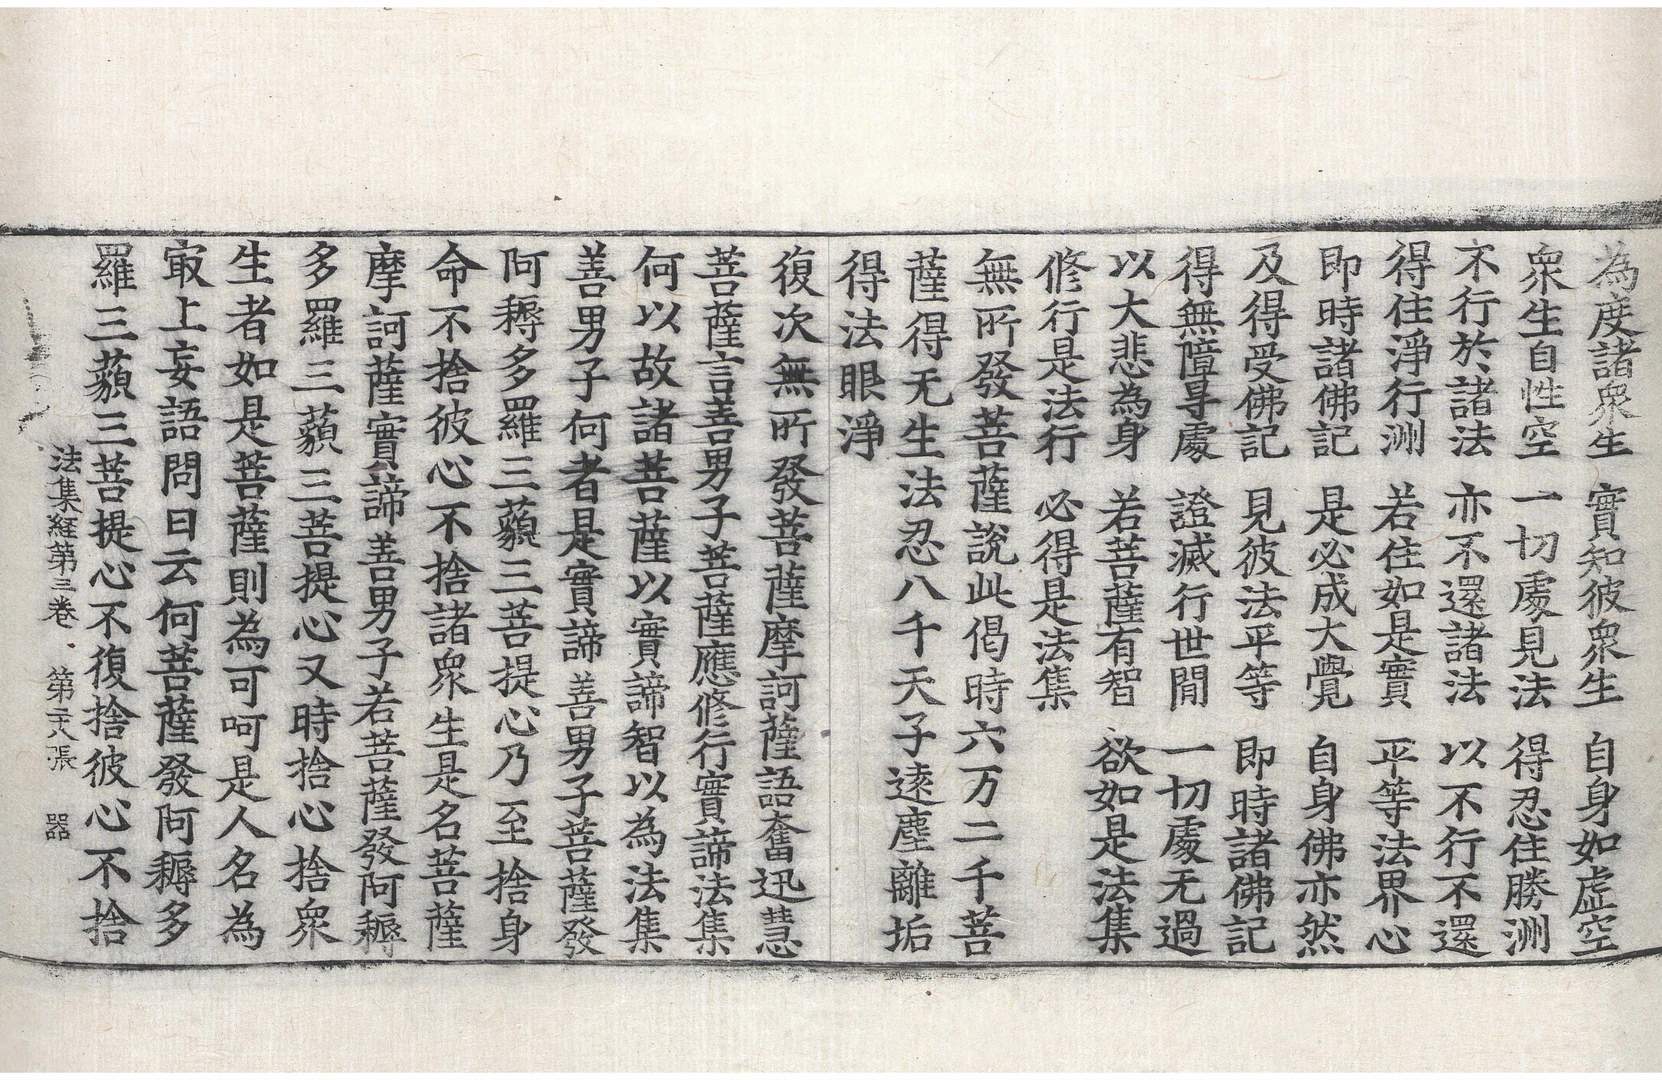 為度諸衆生　實知彼衆生　自身如虛空
衆生自性空　一切處見法　得忍住勝洲
不行於諸法　亦不還諸法　以不行不還
得住淨行洲　若住如是實　平等法界心
即時諸佛記　是必成大覺　自身佛亦然
及得受佛記　見彼法平等　即時諸佛記
得無障㝵處　證滅行世間　一切處无過
以大悲為身　若菩薩有智　欲如是法集
修行是法行　必得是法集
無所發菩薩說此偈時六万二千菩
薩得无生法忍八千天子遠塵離垢
得法眼淨
復次無所發菩薩摩訶薩語奮迅慧
菩薩言善男子菩薩應修行實諦法集
何以故諸菩薩以實諦智以為法集
善男子何者是實諦善男子菩薩發
阿耨多羅三藐三菩提心乃至捨身
命不捨彼心不捨諸衆生是名菩薩
摩訶薩實諦善男子若菩薩發阿耨
多羅三藐三菩提心又時捨心捨衆
生者如是菩薩則為可呵是人名為
㝡上妄語問曰云何菩薩發阿耨多
羅三藐三菩提心不復捨彼心不捨
法集經第三卷　第二八張　器